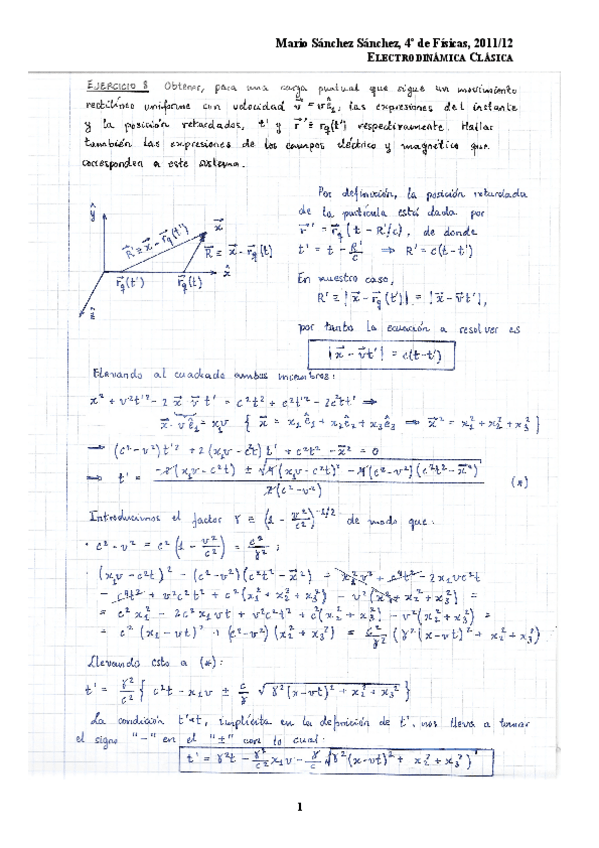 Mario Sánchez Sánchez, 4º de Físicas, 2011/12
ELECTRODINÁMICA CLÁSICA
EJERCICIO 8 Obtener, para una carga puntual que sigue un movimiento
rectilíneo uniforme con velocidad v⃗ = v ê₁, las expresiones del instante
y la posición retardados, t' y r⃗' ≡ r⃗q(t') respectivamente. Hallar
también las expresiones de los campos eléctrico y magnético que
corresponden a este sistema.
Por definición, la posición retardada
de la partícula está dada por
r⃗' = r⃗q(t - R'/c), de donde
t' = t - R'/c ⇒ R' = c(t-t')
En nuestro caso,
R' ≡ |x⃗ - r⃗q(t')| = |x⃗ - v⃗t'|,
por tanto la ecuación a resolver es
|x⃗ - v⃗t'| = c(t-t')
ŷ
R⃗' ≡ x⃗ - r⃗q(t')
x⃗
R⃗ ≡ x⃗ - r⃗q(t)
r⃗q(t')
r⃗q(t)
x̂
ẑ
Elevando al cuadrado ambos miembros:
x² + v²t'² - 2 x⃗·v⃗ t' = c²t² + c²t'² - 2c²tt' ⇒
x⃗·vê₁ = x₁v { x⃗ = x₁ê₁ + x₂ê₂ + x₃ê₃ ⇒ x⃗² = x₁² + x₂² + x₃² }
⇒ (c²-v²)t'² + 2(x₁v - c²t)t' + c²t² - x⃗² = 0
⇒ t' = (-2(x₁v - c²t) ± √(4(x₁v - c²t)² - 4(c²-v²)(c²t² - x⃗²))) / (2(c²-v²)) (*)
Introducimos el factor γ ≡ (1 - v²/c²)^(-1/2) de modo que:
· c² - v² = c²(1 - v²/c²) = c²/γ² ;
· (x₁v - c²t)² - (c²-v²)(c²t² - x⃗²) = x₁²v² + c⁴t² - 2x₁vc²t
- c⁴t² + v²c²t² + c²(x₁² + x₂² + x₃²) - v²(x₁² + x₂² + x₃²) =
= c²x₁² - 2c²x₁vt + v²c²t² + c²(x₂² + x₃²) - v²(x₂² + x₃²) =
= c²(x₁ - vt)² + (c²-v²)(x₂² + x₃²) = c²/γ² (γ²(x-vt)² + x₂² + x₃²)
Llevando esto a (*):
t' = γ²/c² { c²t - x₁v ± c/γ √(γ²(x-vt)² + x₂² + x₃²) }
La condición t'<t, implícita en la definición de t', nos lleva a tomar
el signo "-" en el "±" con lo cual:
t' = γ²t - γ²/c² x₁v - γ/c √(γ²(x-vt)² + x₂² + x₃²)
1